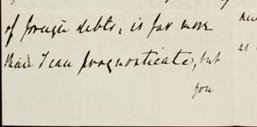 of foreign debts, is far more
than I can prognosticate, but
you
as